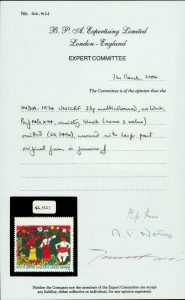 No. 66,421
B. P. A. Expertising Limited
London - England
EXPERT COMMITTEE
The Committee is of the opinion that the
INDIA: 1974 UNICEF 25p multicoloured, no Wmk,
Perf , variety black (name & value)
omitted (SG ), unused with large part
original gum, is genuine
66,421
Neither the Company nor the members of the Expert Committee can accept
any liability, either collective or individual, for any opinion expressed.